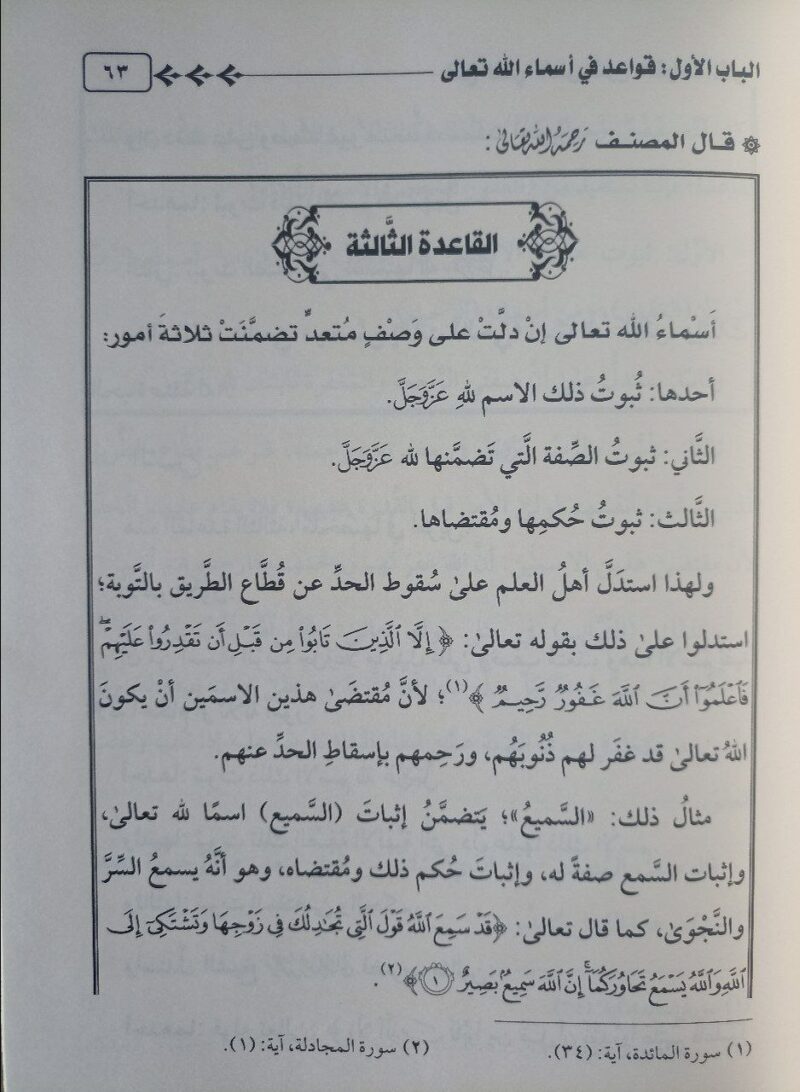 الباب الأول: قواعد في أسماء الله تعالى ٦٣
قال المصنف رَحِمَهُ اللَّهُ تَعَالَى:
القاعدة الثَّالثة
أَسْماءُ الله تعالى إنْ دلَّتْ على وَصْفٍ مُتعدٍّ تضمَّنَتْ ثلاثةَ أمور:
أحدها: ثُبوتُ ذلك الاسم للهِ عَزَّوَجَلَّ.
الثَّاني: ثبوتُ الصِّفة الَّتي تَضمَّنها لله عَزَّوَجَلَّ.
الثَّالث: ثبوتُ حُكمِها ومُقتضاها.
ولهذا استدَلَّ أهلُ العلم علىٰ سُقوط الحدِّ عن قُطَّاع الطَّريق بالتَّوبة؛
استدلوا علىٰ ذلك بقوله تعالىٰ: ﴿ إِلَّا ٱلَّذِينَ تَابُواْ مِن قَبۡلِ أَن تَقۡدِرُواْ عَلَيۡهِمۡۖ
فَٱعۡلَمُوٓاْ أَنَّ ٱللَّهَ غَفُورٞ رَّحِيمٞ ﴾(١)؛ لأنَّ مُقتضَىٰ هذين الاسمَين أنْ يكونَ
اللهُ تعالىٰ قد غفَر لهم ذُنُوبَهُم، ورَحِمهم بإسقاطِ الحدِّ عنهم.
مثالُ ذلك: «السَّميعُ»؛ يَتضمَّنُ إثباتَ (السَّميع) اسمًا لله تعالىٰ،
وإثبات السَّمع صفةً له، وإثباتَ حُكم ذلك ومُقتضاه، وهو أنَّهُ يسمعُ السِّرَّ
والنَّجْوَىٰ، كما قال تعالىٰ: ﴿قَدۡ سَمِعَ ٱللَّهُ قَوۡلَ ٱلَّتِي تُجَٰدِلُكَ فِي زَوۡجِهَا وَتَشۡتَكِيٓ إِلَى
ٱللَّهِ وَٱللَّهُ يَسۡمَعُ تَحَاوُرَكُمَآۚ إِنَّ ٱللَّهَ سَمِيعُۢ بَصِيرٌ ١﴾(٢).
(١) سورة المائدة، آية: (٣٤). (٢) سورة المجادلة، آية: (١).